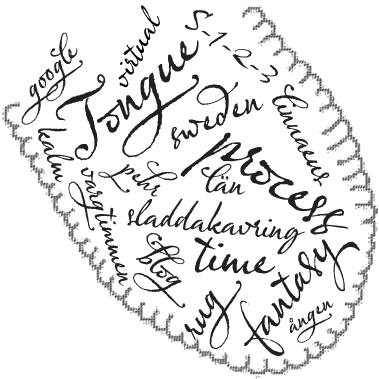 google
virtual
Tongue
S-1-2-3
sweden
linnaeus
kalm
vargtimmen
pehr
process
län
sladdakavring
blog
time
fantasy
rug
ången